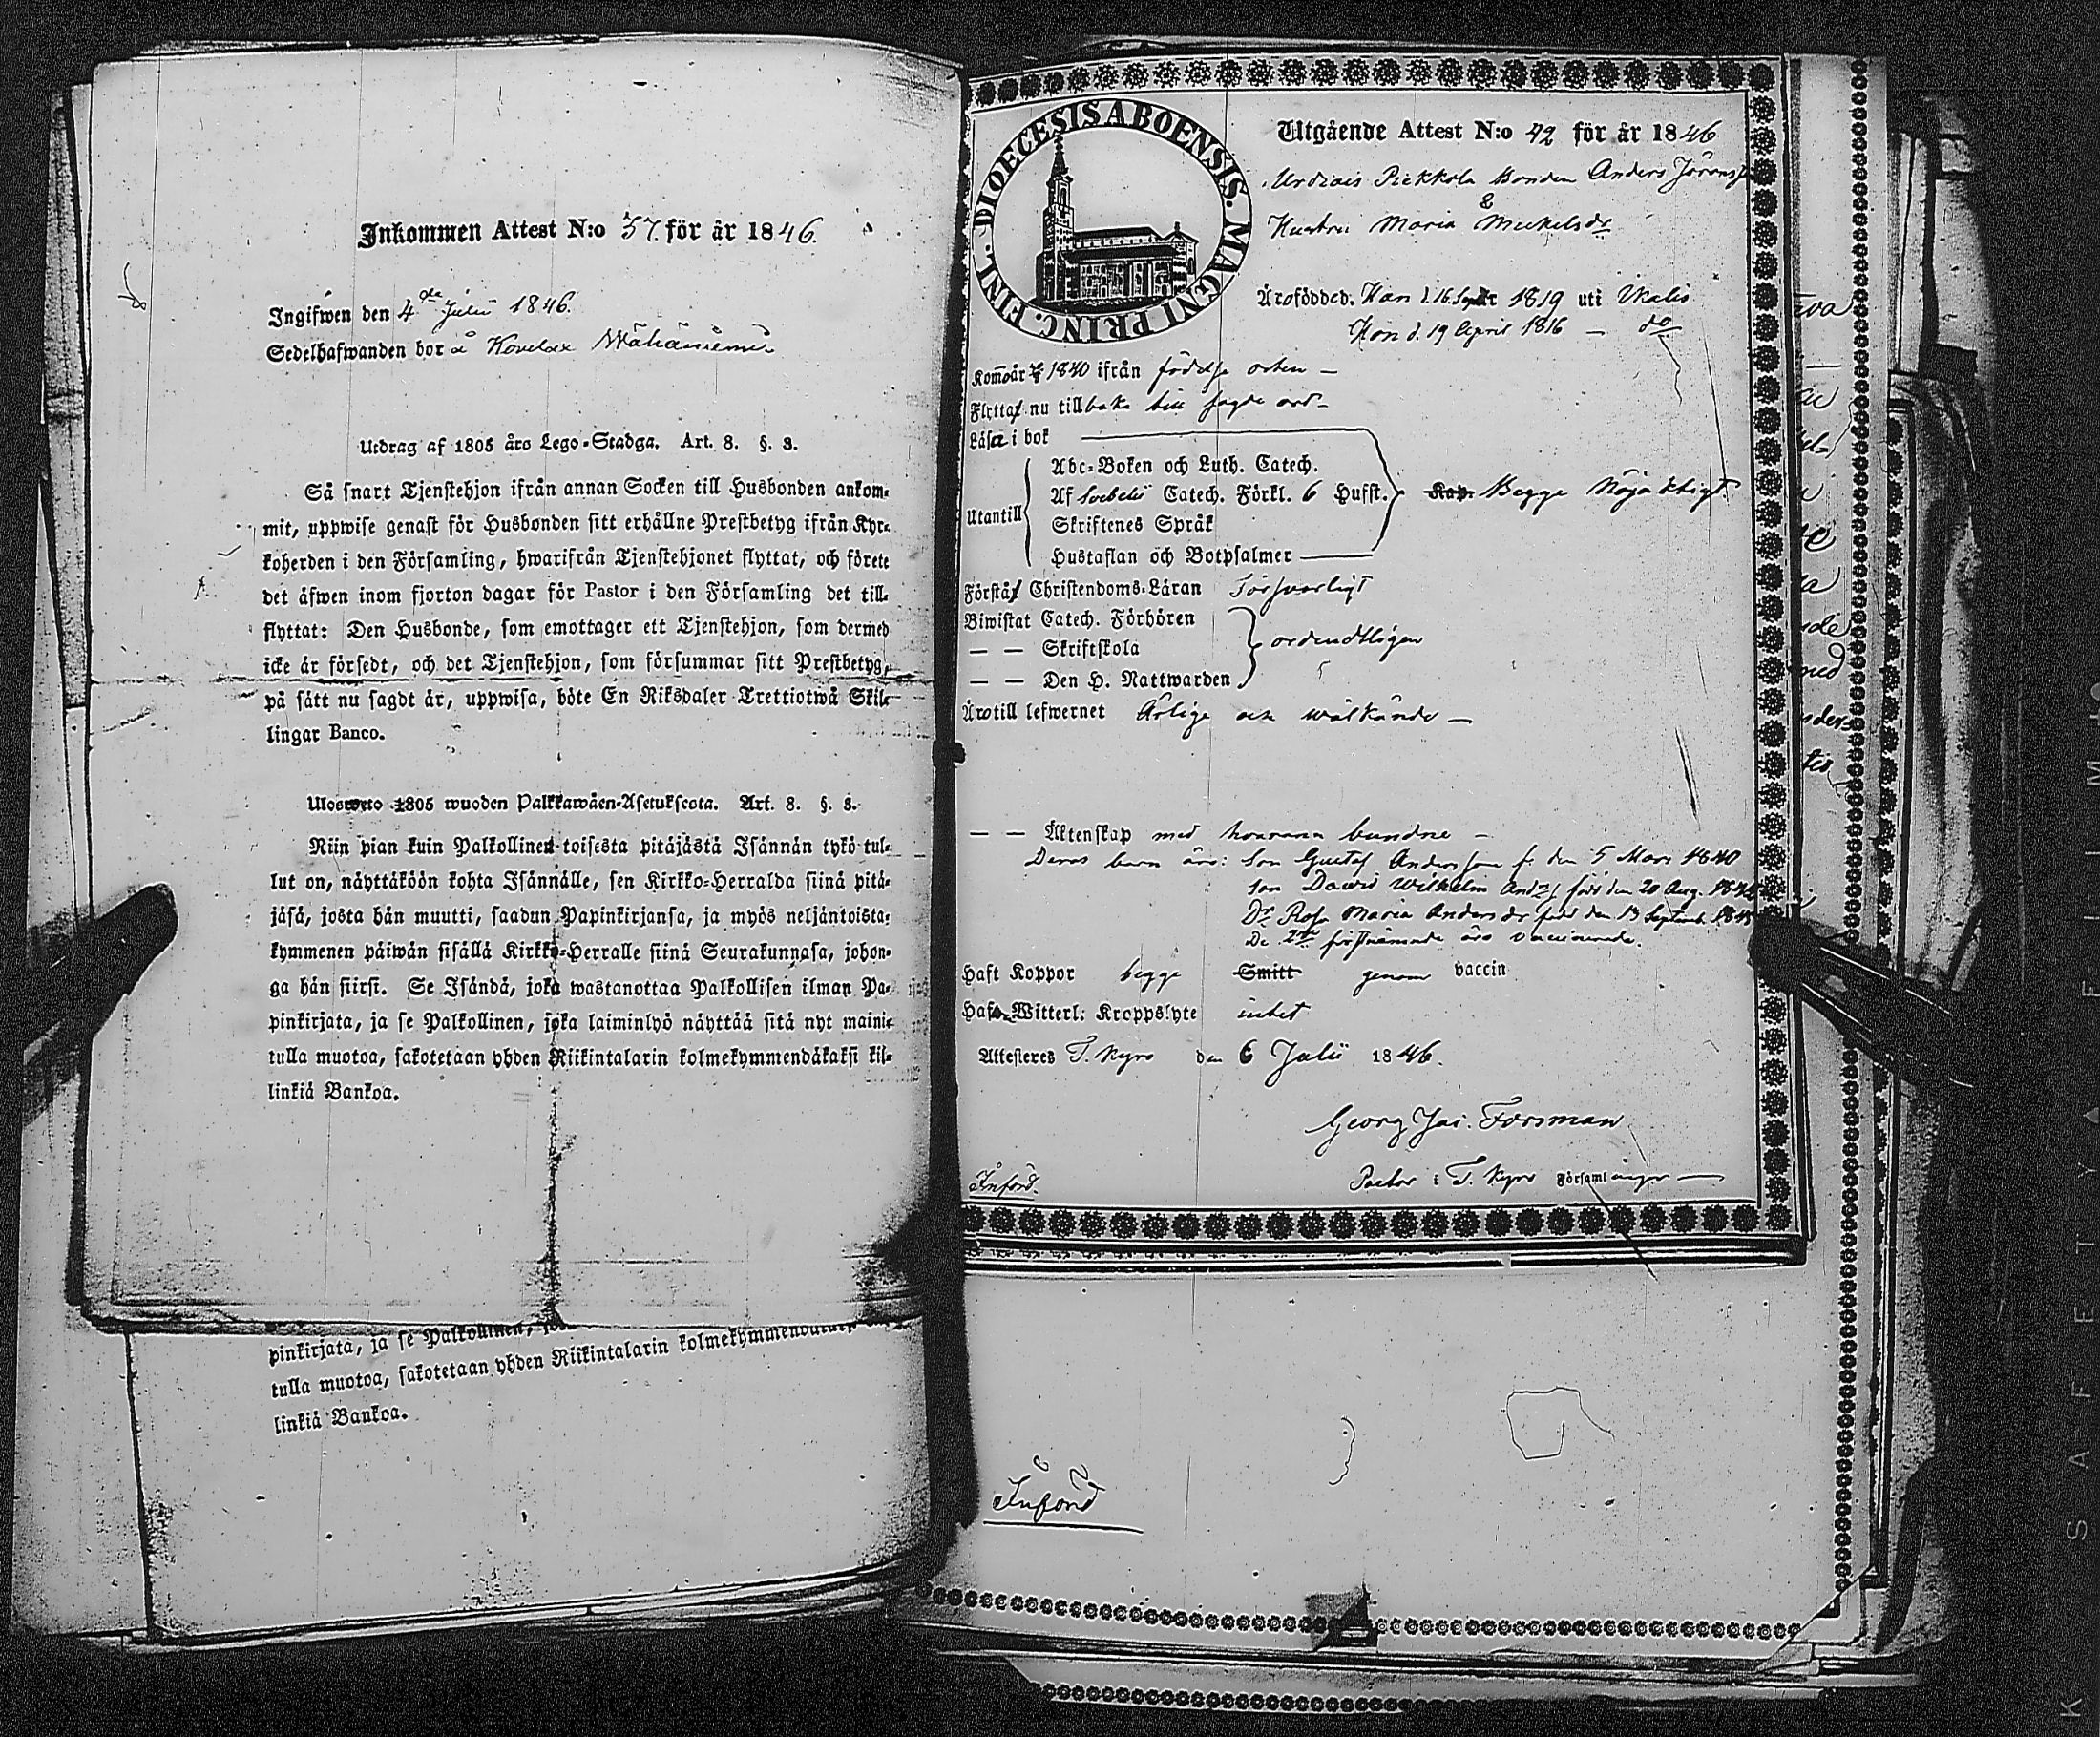 Inkommen Attest N:o 37. för år 1846.
Ingifwen den 4de Julii 1846.
Sedelhafwanden bor å Kovelax
Utdrag af 1805 års Lego-Stadga. Art. 8. §. 3.
Så snart Tjenstehjon ifrån annan Socken till Husbonden ankom-
mit, uppwise genast för Husbonden sitt erhållne Prestbetyg ifrån Kyr-
koherden i den Församling, hwarifrån Tjenstehjonet flyttat, och förete
det äfwen inom fjorton dagar för Pastor i den Församling det till-
flyttat: Den Husbonde, som emottager ett Tjenstehjon, som dermed
icke är försedt, och det Tjenstehjon, som försummar sitt Prestbetyg,
på sätt nu sagdt är, uppwisa, böte En Riksdaler Trettiotwå Skil-
lingar Banco.
Ulosweto 1805 wuoden Palkkawäen-Asetuksesta. Art. 8. §. 3.
Niin pian kuin Palkollinen toisesta pitäjästä Isännän tykö tul-
lut on, näyttäköön kohta Isännälle, sen Kirkko-Herralda siinä pitä-
jäsä, josta hän muutti, saadun Papinkirjansa, ja myös neljäntoista-
kymmenen päiwän sisällä Kirkko-Herralle siinä Seurakunnasa, johon-
ga hän siirsi. Se Isändä, joka wastanottaa Palkollisen ilman Pa-
pinkirjata, ja se Palkollinen, joka laiminlyö näyttää sitä nyt maini-
tulla muotoa, sakotetaan yhden Riikintalarin kolmekymmendäkaksi kil-
linkiä Bankoa.
pinkirjata, ja se Palkollinen,
tulla muotoa, sakotetaan yhden Riikintalarin kolmekymmendäkaksi
linkiä Bankoa.
DIOECESIS ABOENSIS. MAGNI PRINC. FINL.
Utgående Attest N:o 42 för år 1846
Piekkola Bonden Anders Jöransson
& Hustru Maria Mickelsdr
Äro född. Han d. 16 Sept 1819 uti Ikalis
Hon d. 19 April 1816 – do
Kom år 1840 ifrån födelse orten –
Flytta nu tillbaka till sagde ort –
Läsa i bok
Utantill
Abc-Boken och Luth. Catech.
Af Svebelii Catech. Förkl. 6 Hufst.
Skriftenes Språk
Hustaflan och Botpsalmer
Begge Nöjaktigt
Förstå Christendoms-Läran Försvarligt
Biwistat Catech. Förhören
— — Skriftskola
— — Den H. Nattwarden
ordendtligen
Äro till lefwernet Ärlige och wälkände —
— — Äktenskap med hvarann bundne –
Deras barn äro: Son Gustaf Andersson f. den 5 Mars 1840
Son David Wilhelm And:s född den 20 Aug.
Dr Rosa Maria Andersdr född den 13 Septemb. 1845
De 2ne förstnämnde äro vaccinerade.
Haft Koppor begge Smitt genom vaccin
Haft Witterl: Kroppslyte intet
Attesteres T. Kyro den 6 Julii 1846.
Georg Jac. Forsman
Pastor i T. Kyro Församlingn —
Införd.
Införd
K SAFETY FILM